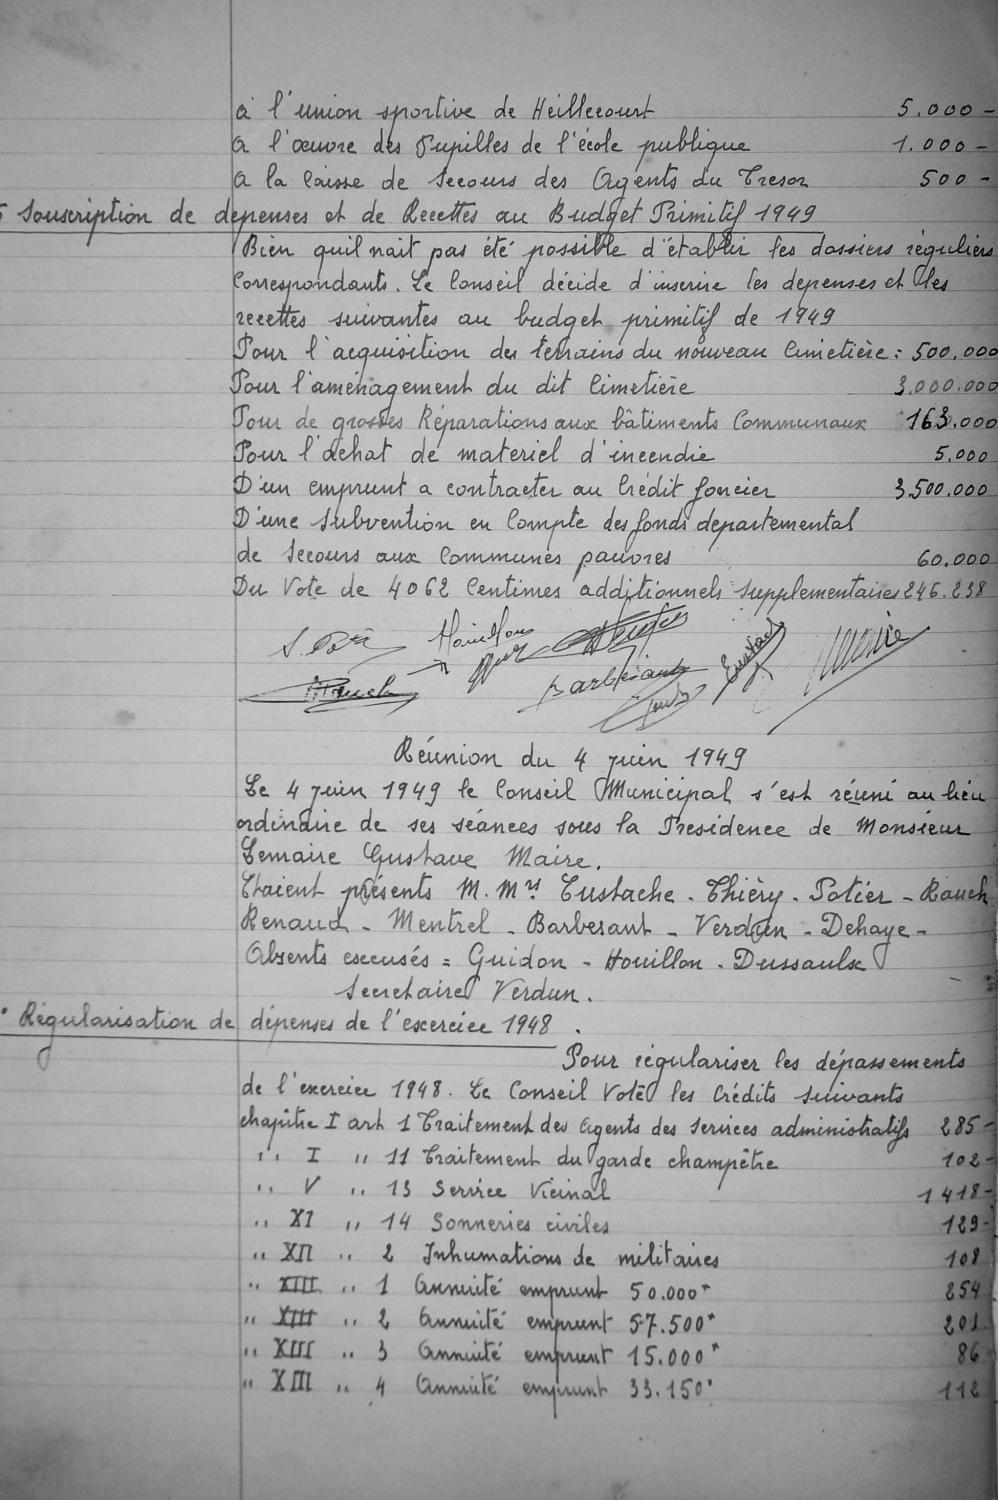 a l'union sportive de Heillecourt 5.000 -
a l'œuvre des Pupilles de l'école publique 1.000 -
a la Caisse de Secours des Agents du Tresor 500 -
5 Souscription de depenses et de Recettes au Budget Primitif 1949
Bien quil nait pas été possible d'établir les dossiers réguliers
Correspondants. Le Conseil décide d'inscrire les depenses et les
recettes suivantes au budget primitif de 1949
Pour l'acquisition des terrains du nouveau Cimetière : 500.000
Pour l'aménagement du dit Cimetière 3.000.000
Pour de grosses Réparations aux bâtiments Communaux 163.000
Pour l'achat de materiel d'incendie 5.000
D'un emprunt a contracter au Crédit foncier 3.500.000
D'une Subvention en Compte des fonds departemental
de Secours aux Communes pauvres 60.000
Du Vote de 4062 Centimes additionnels supplementaires 246.238
Houillon
Rauch
Barbesant
Eustache
Lemaire
Réunion du 4 juin 1949
Le 4 juin 1949 le Conseil Municipal s'est réuni au lieu
ordinaire de ses séances sous la Presidence de Monsieur
Lemaire Gustave Maire.
Etaient présents M. Mrs Eustache - Thiéry - Potier - Rauch
Renaud - Mentrel - Barbesant - Verdun - Dehaye -
Absents excusés = Guidon - Houillon - Dussaulx
Secretaire Verdun.
Régularisation de dépenses de l'exercice 1948 .
Pour régulariser les dépassements
de l'exercice 1948. Le Conseil Vote les Crédits suivants
chapitre I art 1 Traitement des Agents des Services administratifs 285 -
" I " 11 Traitement du garde champêtre 102 -
" V " 13 Service Vicinal 1418 -
" XI " 14 Sonneries civiles 129 -
" XII " 2 Inhumations de militaires 108
" XIII " 1 Annuité emprunt 50.000 254
" XIII " 2 Annuité emprunt 57.500 201
" XIII " 3 Annuité emprunt 15.000 86
" XIII " 4 Annuité emprunt 33.150 112